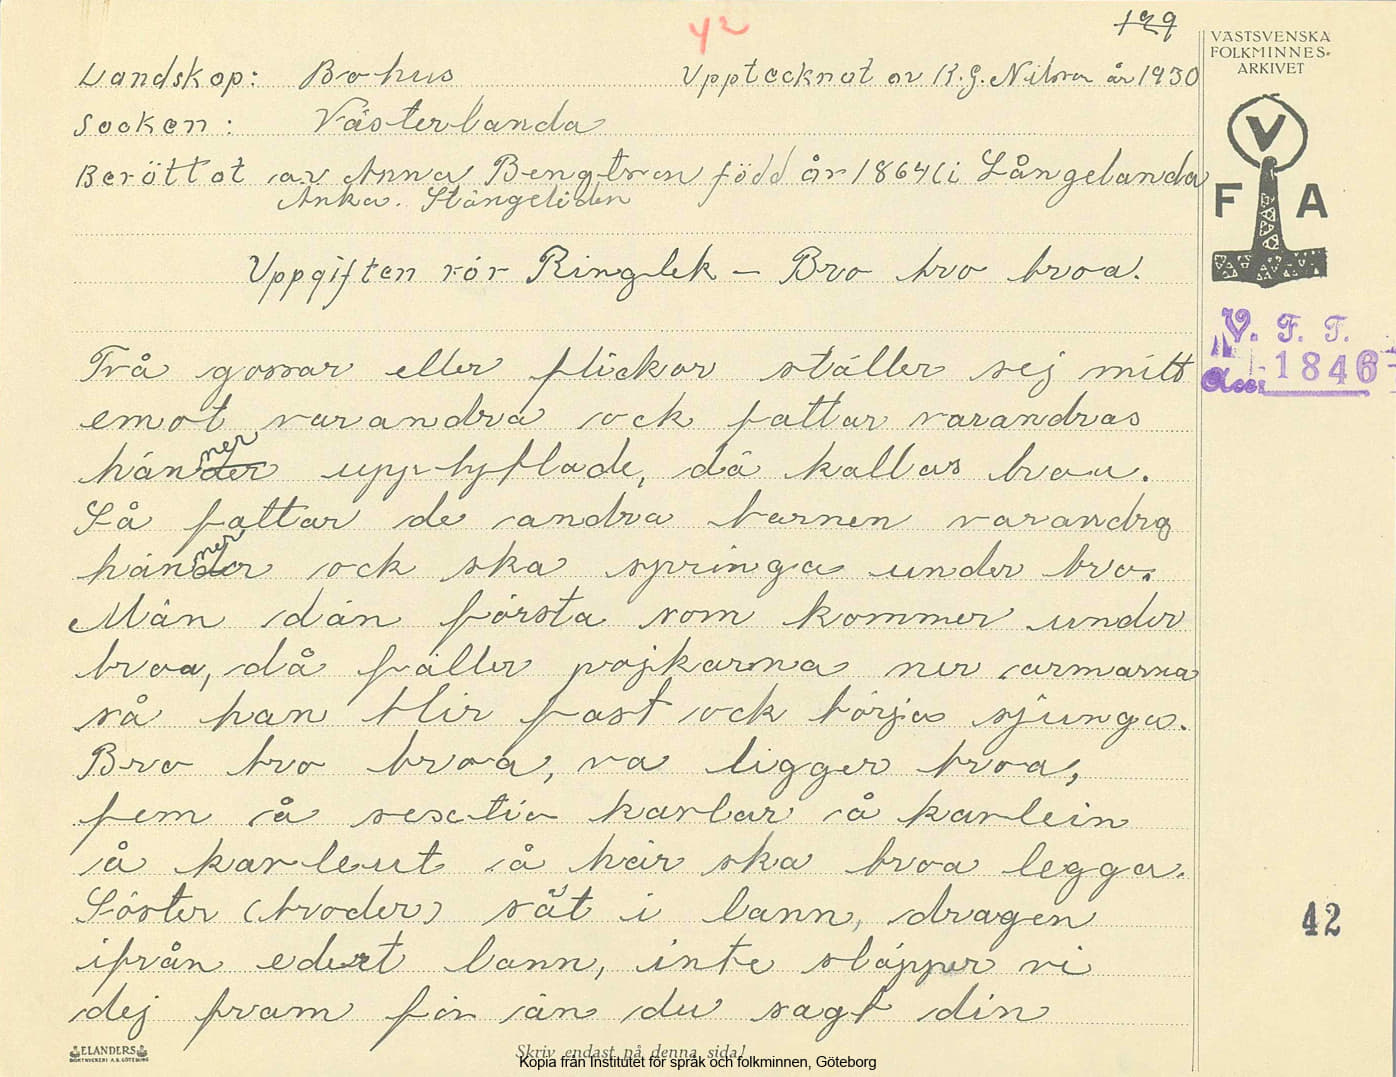 42
179
VÄSTSVENSKA
FOLKMINNES-
ARKIVET
Landskap: Bohus Upptecknat av K.G. Nilson år 1930
Socken: Västerlanda
Berättat av Anna Bengtson född år 1864 (i Långelanda
Änka. Stängeliden
V
F A
Uppgiften rör Ringlek – Bro bro broa.
V. F. T.
Acc. 1846
Två gossar eller flickor ställer sej mitt
emot varandra ock fattar varandras
händer ner upp-lyftade, dä kallas broa.
Så fattar de andra barnen varandra
händer ner ock ska springa under bro.
Män dän första som kommer under
broa, då fäller pojkarna ner armarna
så han blir fast ock börja sjunga.
Bro bro broa, va ligger broa,
fem å sextio karlar å karlein
å karleut å här ska broa legga.
Söster (broder) såt i lann, dragen
42
ifrån edert lann, inte släpper vi
dej fram för än du sagt din
ELANDERS
BOKTRYCKERI A.B. GÖTEBORG
Skriv endast på denna sida!
Kopia från Institutet för språk och folkminnen, Göteborg